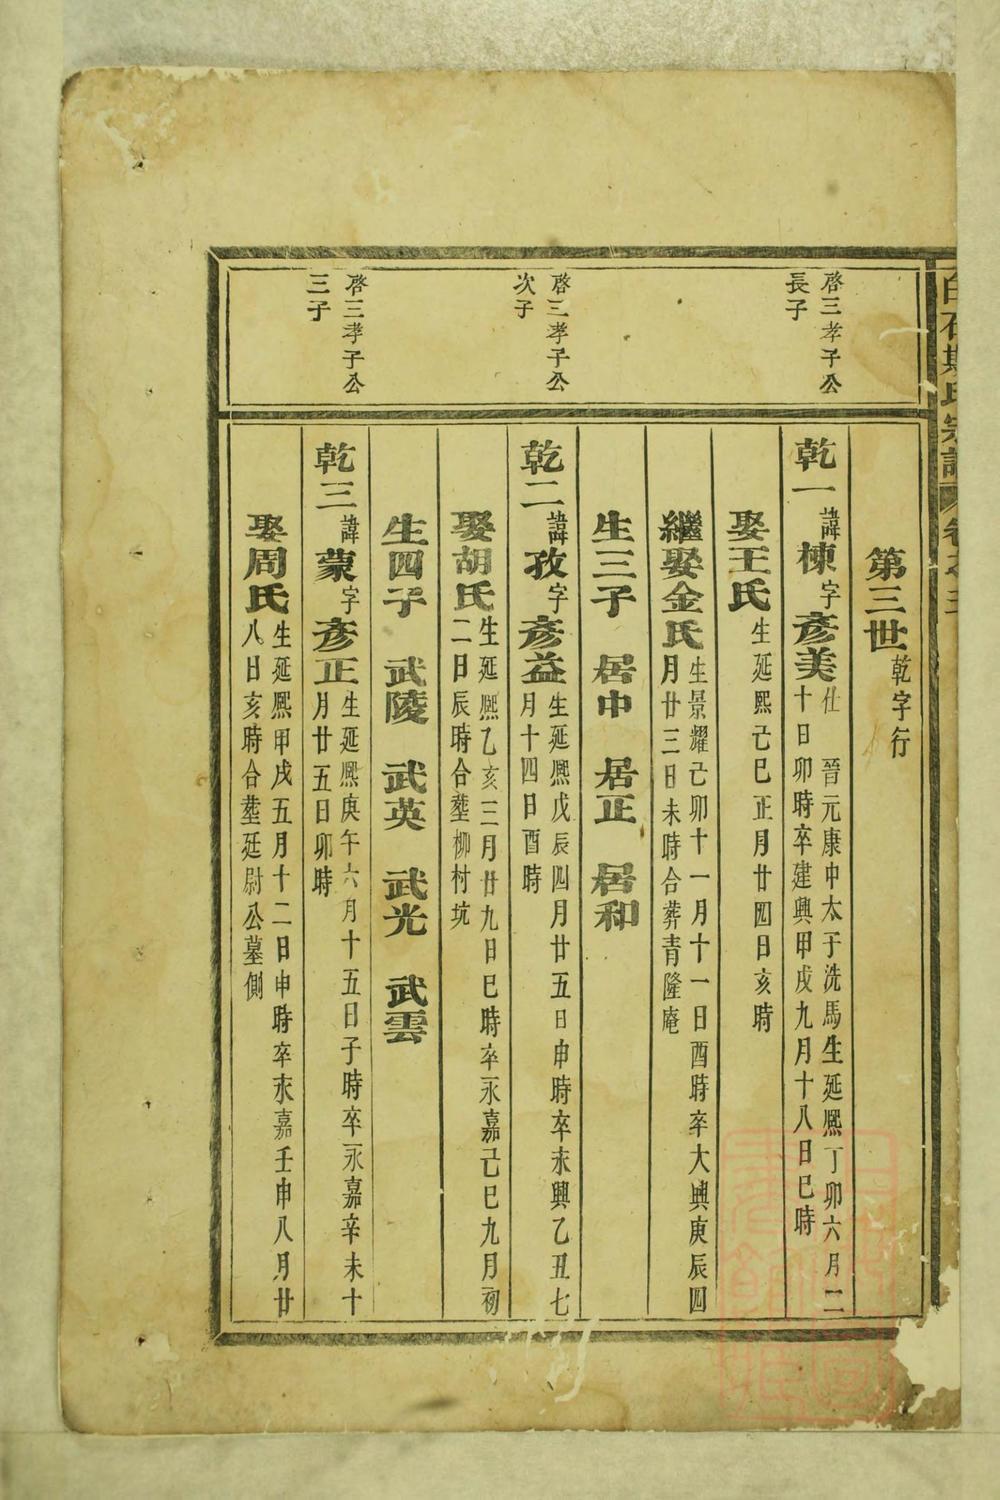 白石斯氏宗譜 卷之三
第三世乾字行
啓三孝子公
長子
乾一諱棟字彥美仕 晉元康中太子洗馬生延熙丁卯六月二
十日卯時卒建興甲戌九月十八日巳時
娶王氏生延熙己巳正月廿四日亥時
繼娶金氏生景耀己卯十一月十一日酉時卒大興庚辰四
月廿三日未時合葬青隆庵
生三子 居中 居正 居和
啓三孝子公
次子
乾二諱孜字彥益生延熙戊辰四月廿五日申時卒永興乙丑七
月十四日酉時
娶胡氏生延熙乙亥三月廿九日巳時卒永嘉己巳九月初
二日辰時合塟柳村坑
生四子 武陵 武英 武光 武雲
啓三孝子公
三子
乾三諱蒙字彥正生延熙庚午六月十五日子時卒永嘉辛未十
月廿五日卯時
娶周氏生延熙甲戌五月十二日申時卒永嘉壬申八月廿
八日亥時合塟廷尉公墓側